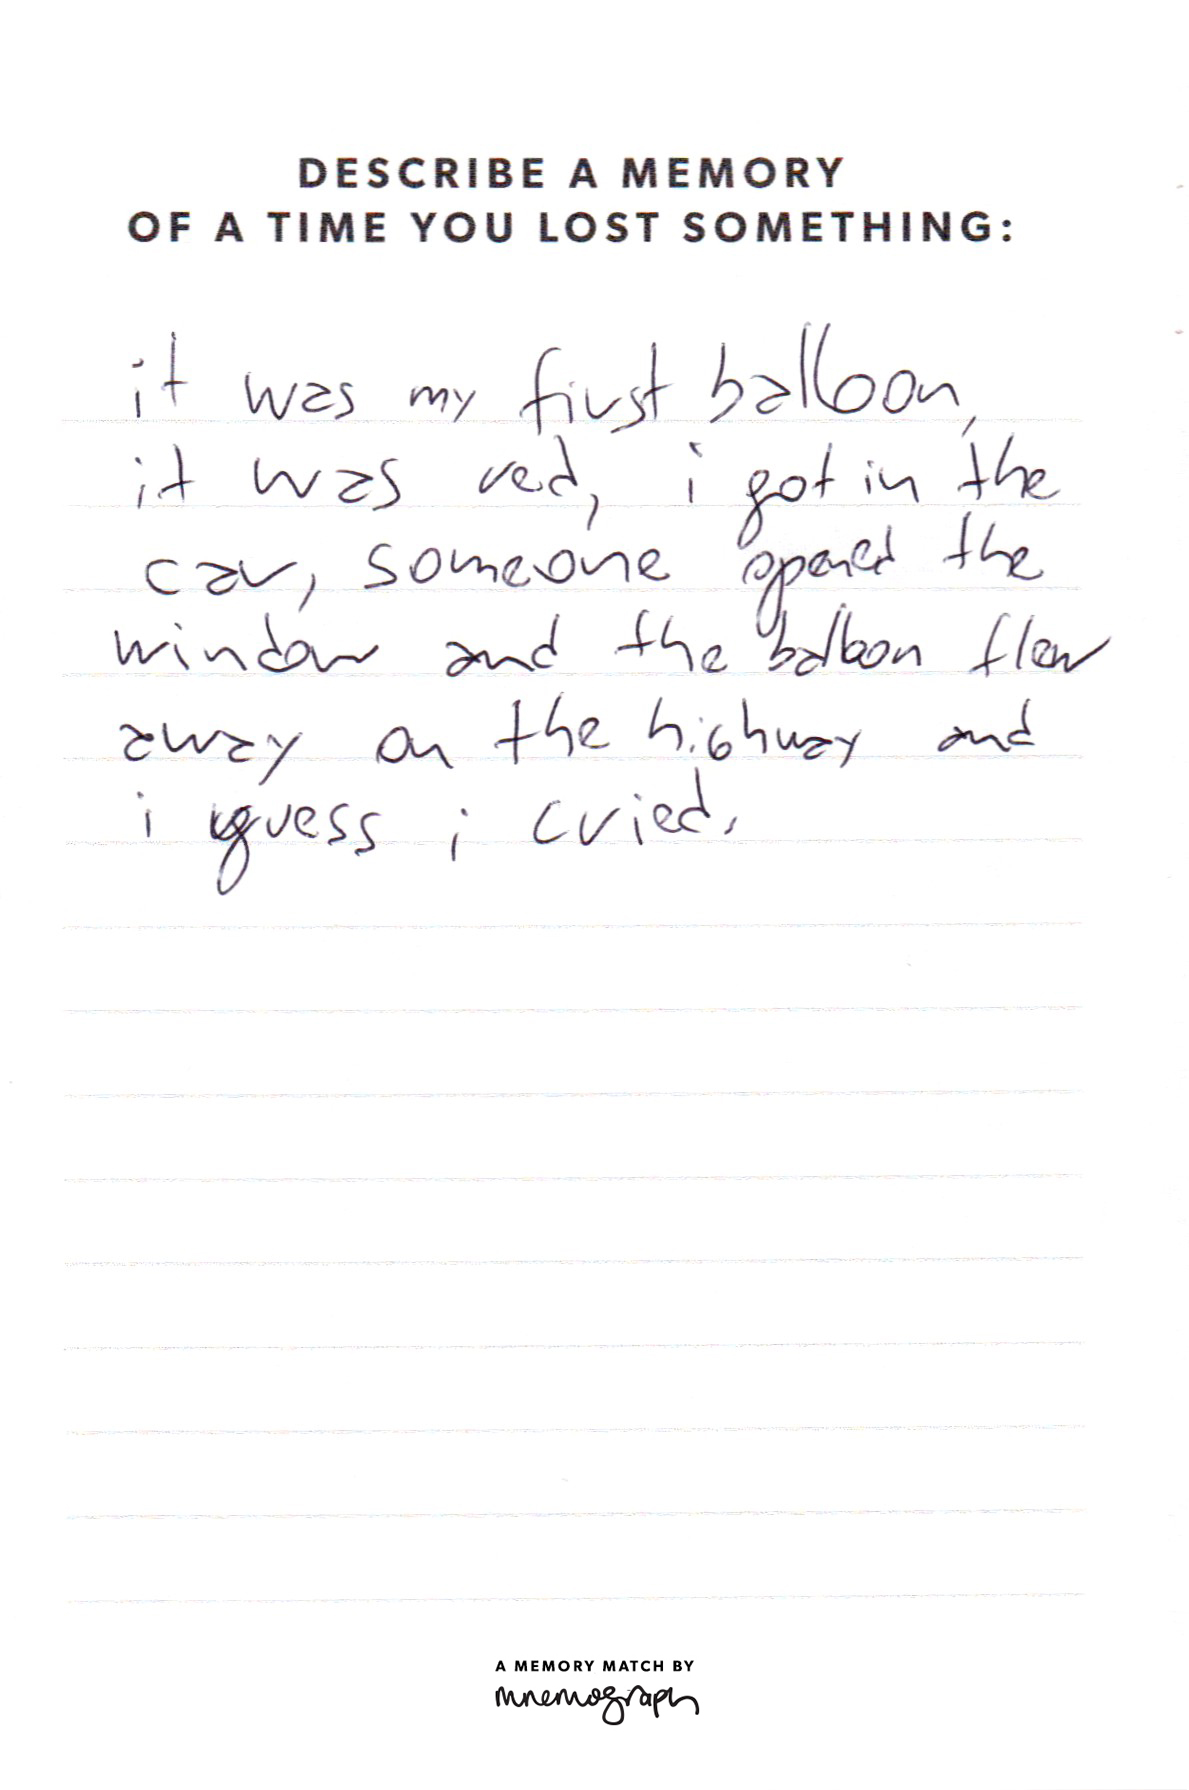 DESCRIBE A MEMORY
OF A TIME YOU LOST SOMETHING:
it was my first balloon,
it was red, i got in the
car, someone opened the
window and the balloon flew
away on the highway and
i guess i cried.
A MEMORY MATCH BY
mnemograph